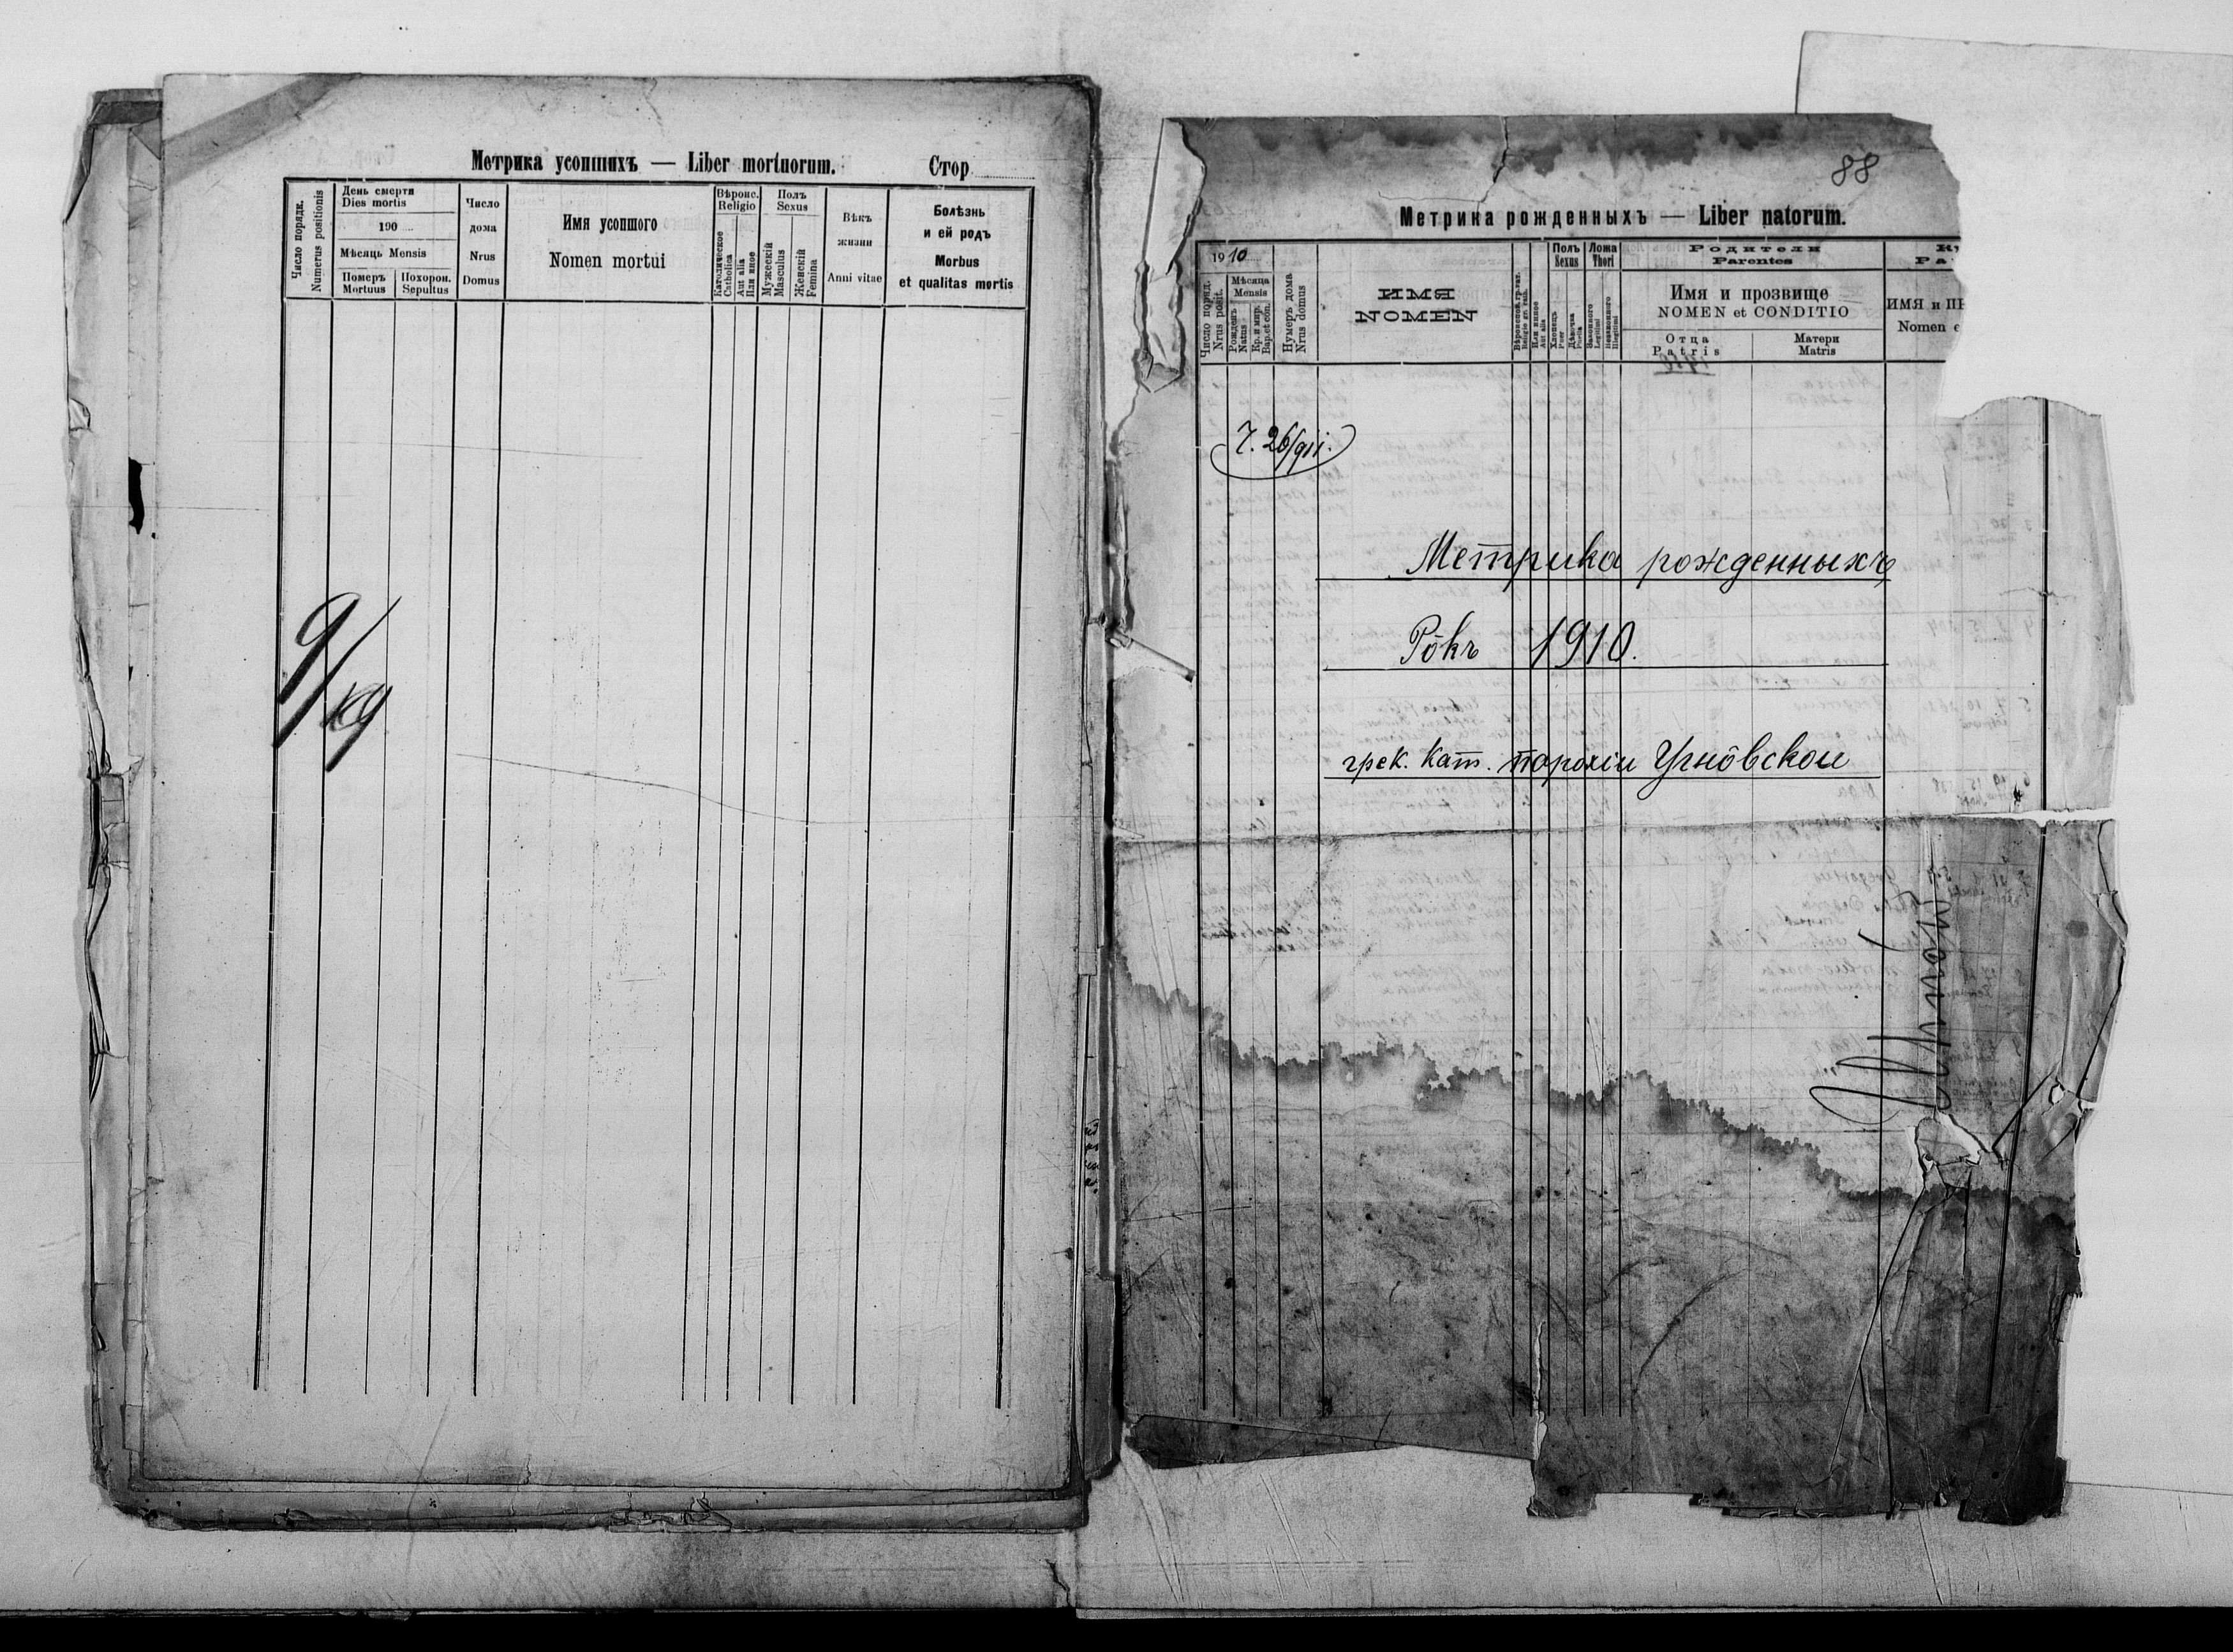 Метрика усопшихъ — Liber mortuorum. Стор
Число порядк.
Numerus positionis
День смерти
Dies mortis
190
Мѣсяць Mensis
Померъ
Mortuus
Похорон.
Sepultus
Число
дома
Nrus
Domus
Имя усопшого
Nomen mortui
Вѣроис.
Religio
Католическое
Catholica
Aut alia
Или иное
Полъ
Sexus
Мужескій
Masculus
Женскій
Femina
Вѣкъ
жизни
Anni vitae
Болѣзнь
и ей родъ
Morbus
et qualitas mortis
9/
88
Метрика рожденныхъ — Liber natorum.
1910
Число поряд.
Nrus posit.
Мѣсяца
Mensis
Рожденъ
Natus
Кр. и мир.
Bap. et con.
Нумеръ дома
Nrus domus
ИМЯ
NOMEN
Или инное
Aut alia
Полъ
Sexus
Хлопець
Puer
Дѣвочка
Puella
Ложа
Thori
Законного
Legitimi
Незаконного
Illegitimi
Родители
Parentes
Имя и прозвище
NOMEN et CONDITIO
Отца
Patris
Матери
Matris
ИМЯ и
Nomen
Ч. 26/911.
Метрика рожденныхъ
Рôкъ 1910.
грек. кат. парохіи Угнôвскои
Угнôв